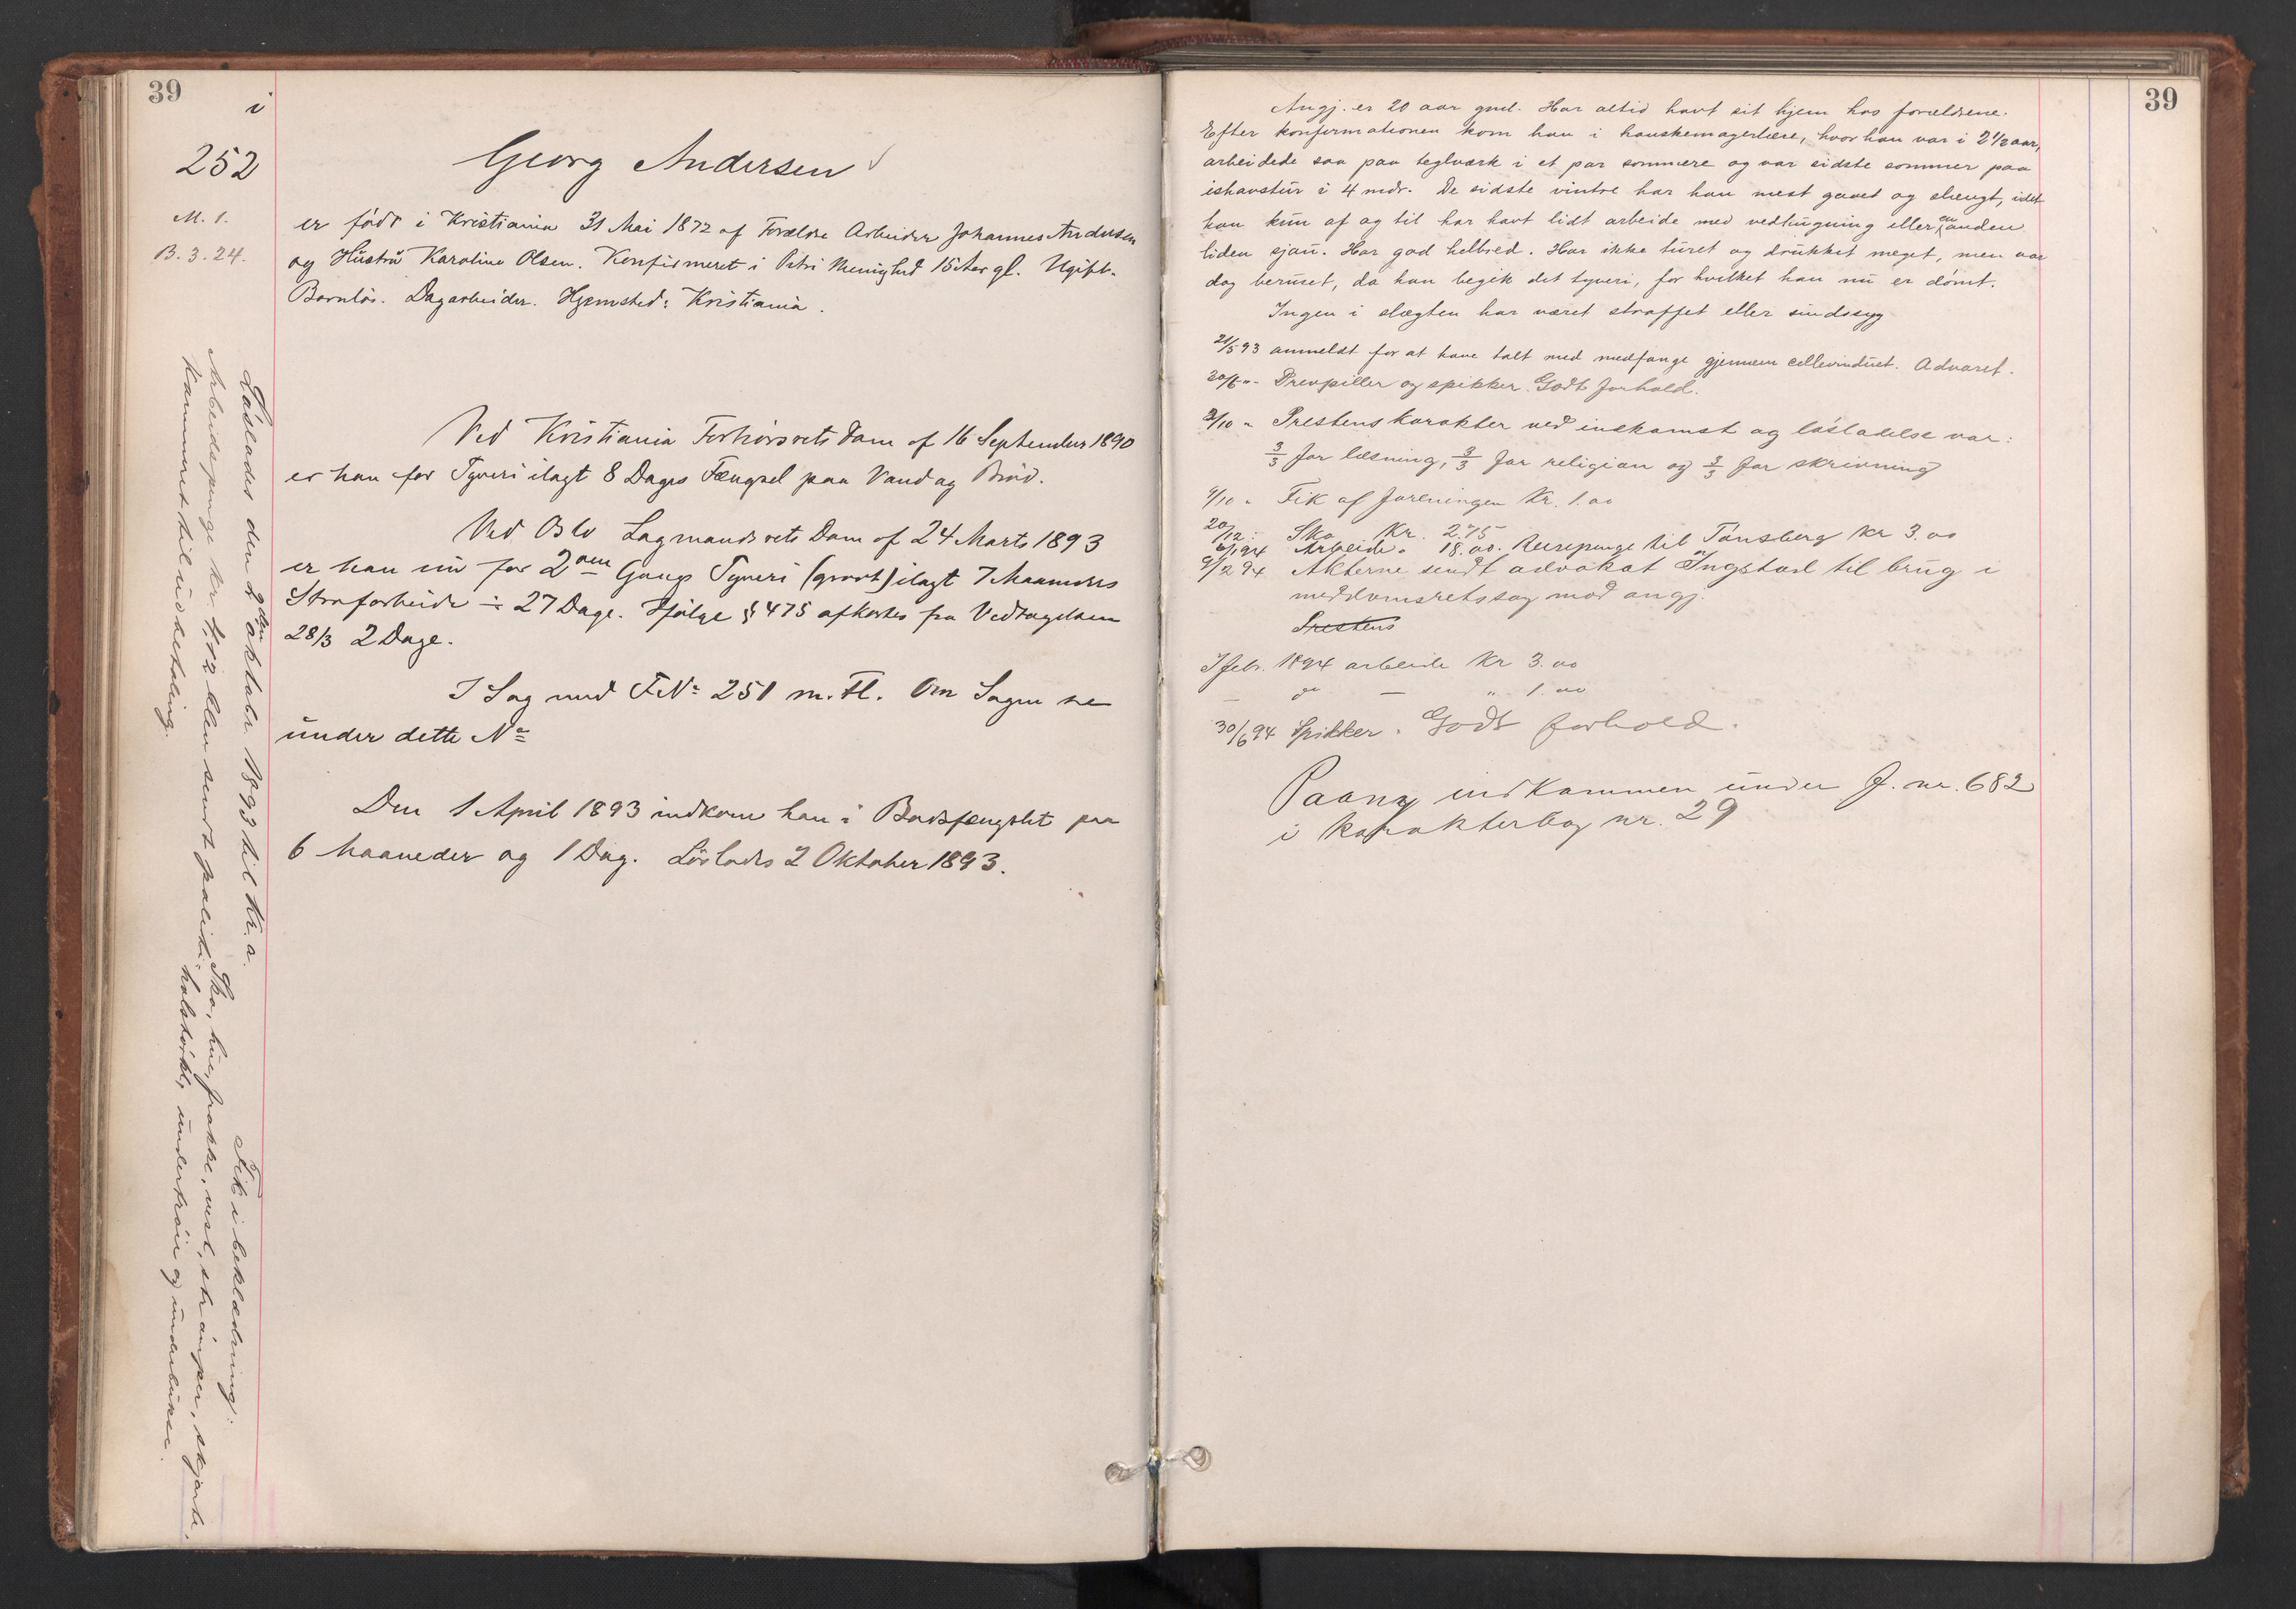 39
i
252
M. 1.
B. 3. 24.
Georg Andersen
er födt i Kristiania 31 Mai 1872 af Forældre Arbeider Johannes Andersen
og Hustru Karoline Olsen. Konfirmeret i Petri Menighed 15 Aar gl. Ugift.
Barnlös. Dagarbeider. Hjemsted: Kristiania.
Ved Kristiania Forhörsrets Dom af 16 September 1890
er han for Tyveri ilagt 8 Dages Fængsel paa Vand og Bröd.
Ved Oslo Lagmandsrets Dom af 24 Marts 1893
er han nu for 2den Gang Tyveri (grovt) ilagt 7 Maaneders
Strafarbeide ÷ 27 Dage. Ifölge § 475 afkortes fra Vedtagelsen
28/3 2 Dage.
I Sag med F.No 251 m. Fl. Om Sagen se
under dette No
Den 1 April 1893 indkom han i Bodsfængslet paa
6 Maaneder og 1 Dag. Löslades 2 Oktober 1893.
Löslades den 2den oktober 1893 til Kr.a.
Arbeidspenge kr. blev sendt politi-
kammeret til udbetaling.
Fik i beklædning:
Sko, hue, frakke, vest, strömper, skjorte,
halstörklæ, undertröie og underbukse.
39
Angj. er 20 aar gml. Har altid havt sit hjem hos forældrene.
Efter konfirmationen kom han i hanskemagerlære, hvor han var i 2 1/2 aar,
arbeidede saa paa teglværk i et par sommere og var sidste sommer paa
ishavstur i 4 mdr. De sidste vintre har han mest gaaet og slængt, idet
han kun af og til har havt lidt arbeide med vedhugning eller en anden
liden sjau. Har god helbred. Har ikke turet og drukket meget, men var
dog beruset, da han begik det tyveri, for hvilket han nu er dömt.
Ingen i slægten har været straffet eller sindssyg
21/5 93 anmeldt for at have talt med medfange gjennem cellevinduet. Advaret.
30/6 " - Drevpiller og spikker. Godt forhold.
2/10 " Prestens karakter ved indkomst og lösladelse var:
3/3 for læsning, 3/3 for religion og 3/3 for skrivning
4/10 " Fik af foreningen Kr. 1.00
20/12 : Sko Kr. 2.75
6/1 94 Arbeide " 18.00. Reisepenge til Tönsberg Kr 3.00
9/2 94 Akterne sendt advokat Ingstad til brug i
meddomsretssag mod angj.
Prestens
I febr. 1894 arbeide Kr 3.00
— " — " 1.00
30/6 94 Spikker. Godt forhold.
Paany indkommen under F. nr. 682
i karakterbog nr. 29